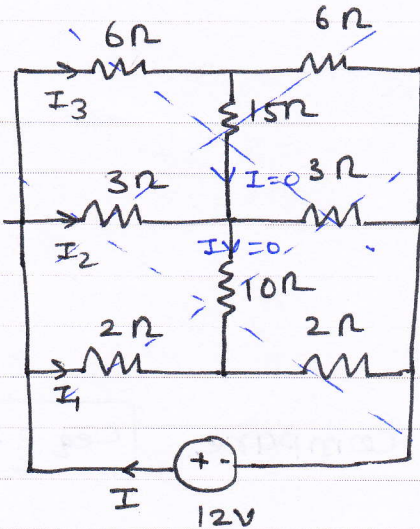 6Ω 6Ω
I3 15Ω
I=0
3Ω 3Ω
I2 I=0
10Ω
2Ω 2Ω
I1
+ -
I
12V